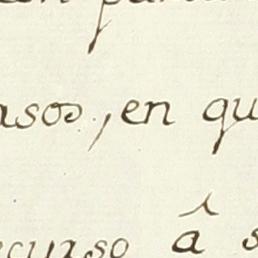 asos, en qu
ecurso â s